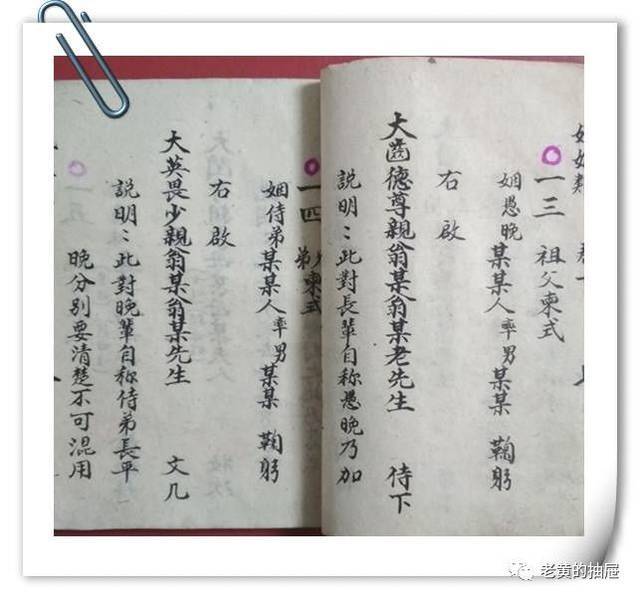 一三 祖父柬式
姻愚晚 某某人率男某某 鞠躬
右啟
大齒德尊親翁某翁某老先生 侍下
說明：此對長輩自稱愚晚乃加
一四 弟柬式
姻侍弟某某人率男某某 鞠躬
右啟
大英畏少親翁某翁某先生 文几
說明：此對晚輩自稱侍弟長平
晚分別要清楚不可混用
一五
老黄的抽屉